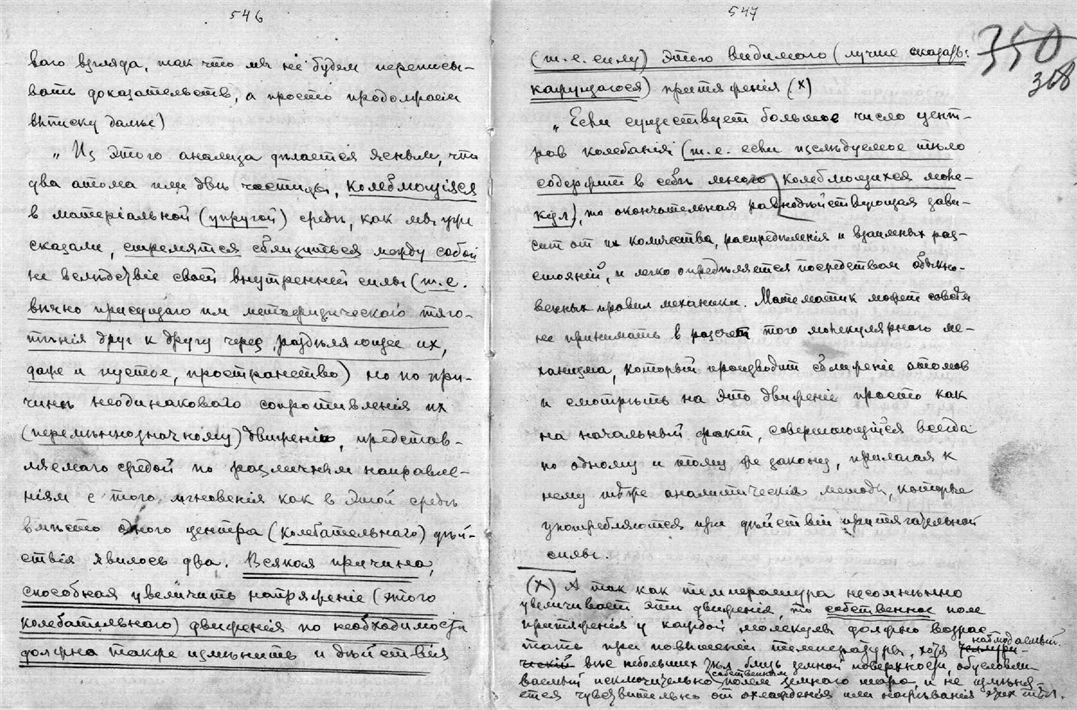 546
ваго взгляда, так что мы не будем переписы-
вать доказательств, а просто продолжаем
выписку далее)
„Из этого анализа делается ясным, что
два атома или две частицы, колеблющіяся
в матеріальной (упругой) среде, как мы уже
сказали, стремятся сблизиться между собой
не вследствіе своей внутренней силы (т.е.
вично присущаго им метафизическаго тяго-
тѣнія друг к другу через раздѣляющее их,
даже и пустое, пространство) но по при-
чинѣ неодинаковаго сопротивленія их
(перемѣннозначному) движенію, представ-
ляемаго средой по различным направле-
ніям с того мгновенія как в этой средѣ
вмѣсто одного центра (колебательнаго) дѣй-
ствія явилось два. Всякая причина,
способная увеличить напряженіе (этого
колебательнаго) движенія по необходимости
должна также измѣнить и дѣйствія
547
350
368
(т.е. силу) этого видимого (лучше сказать:
кажущагося) притяженія (x)
„Если существует большое число цент-
ров колебанія (т.е. если изследуемое тело
содержит в себѣ много колеблющихся моле-
кул), то окончательная равнодѣйствующая зави-
сит от их количества, распредѣленія и взаимных раз-
стояній, и легко опредѣляется посредством обыкно-
венных правил механики. Математик может совсѣм
не принимать в разсчет того молекулярного ме-
ханизма, который производит сближеніе атомов
и смотрѣть на это движеніе просто как
на начальный факт, совершающійся всегда
по одному и тому же закону, прилагая к
нему тѣже аналитическія методы, которые
употребляются при дѣйствіи притягательной
силы.
(x) А так как температура несомнѣнно
увеличивает эти движенія, то собственное поле
притяженія у каждой молекулы должно возрас-
тать при повышеніи температуры, хотя наблюдаемый
вѣс небольших тѣл близь земной поверхности, обусловли-
ваемый исключительно собственным полем земного шара и не измѣня-
ется чувствительно от охлажденія или нагрѣванія этих тѣл.